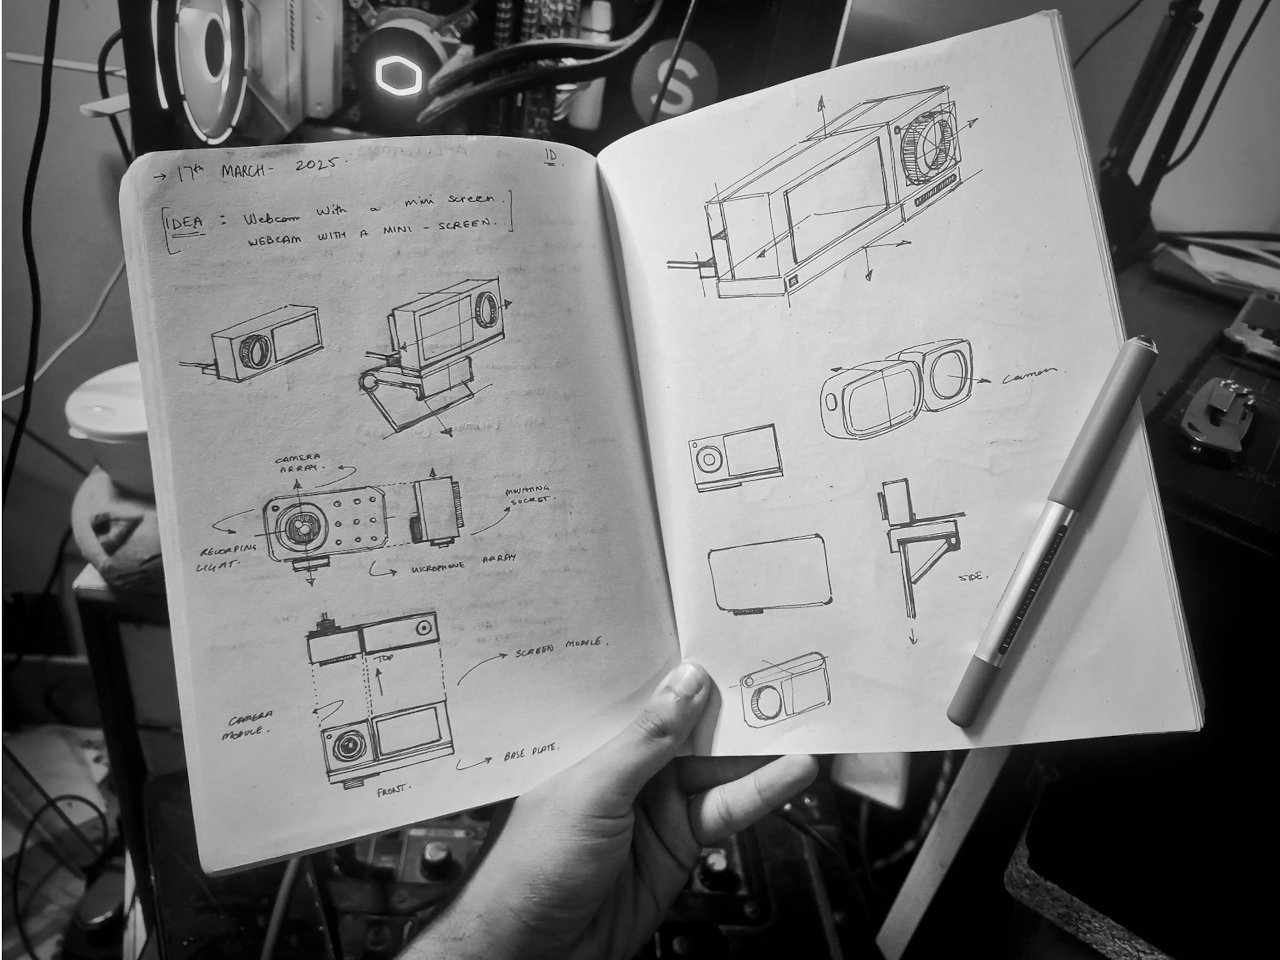 → 17th MARCH - 2025.
ID
[IDEA : Webcam with a mini screen.
WEBCAM WITH A MINI - SCREEN.]
CAMERA
ARRAY.
MOUNTING
SOCKET.
RECORDING
LIGHT.
MICROPHONE ARRAY
TOP
SCREEN MODULE.
CAMERA
MODULE.
BASE PLATE.
FRONT.
camera.
SIDE.
S